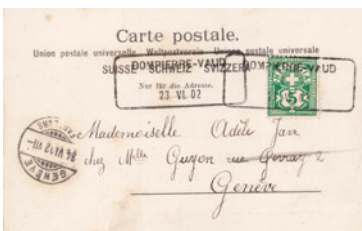 Carte postale.
Union postale universelle Weltpostverein Unione postale universale
SUISSE SCHWEIZ SVIZZERA
DOMPIERRE-VAUD
DOMPIERRE-VAUD
Nur für die Adresse.
23 VI. 02
GENÈVE
Mademoiselle Adèle Jan
chez Mlle Guyon rue Gevray 2
Genève